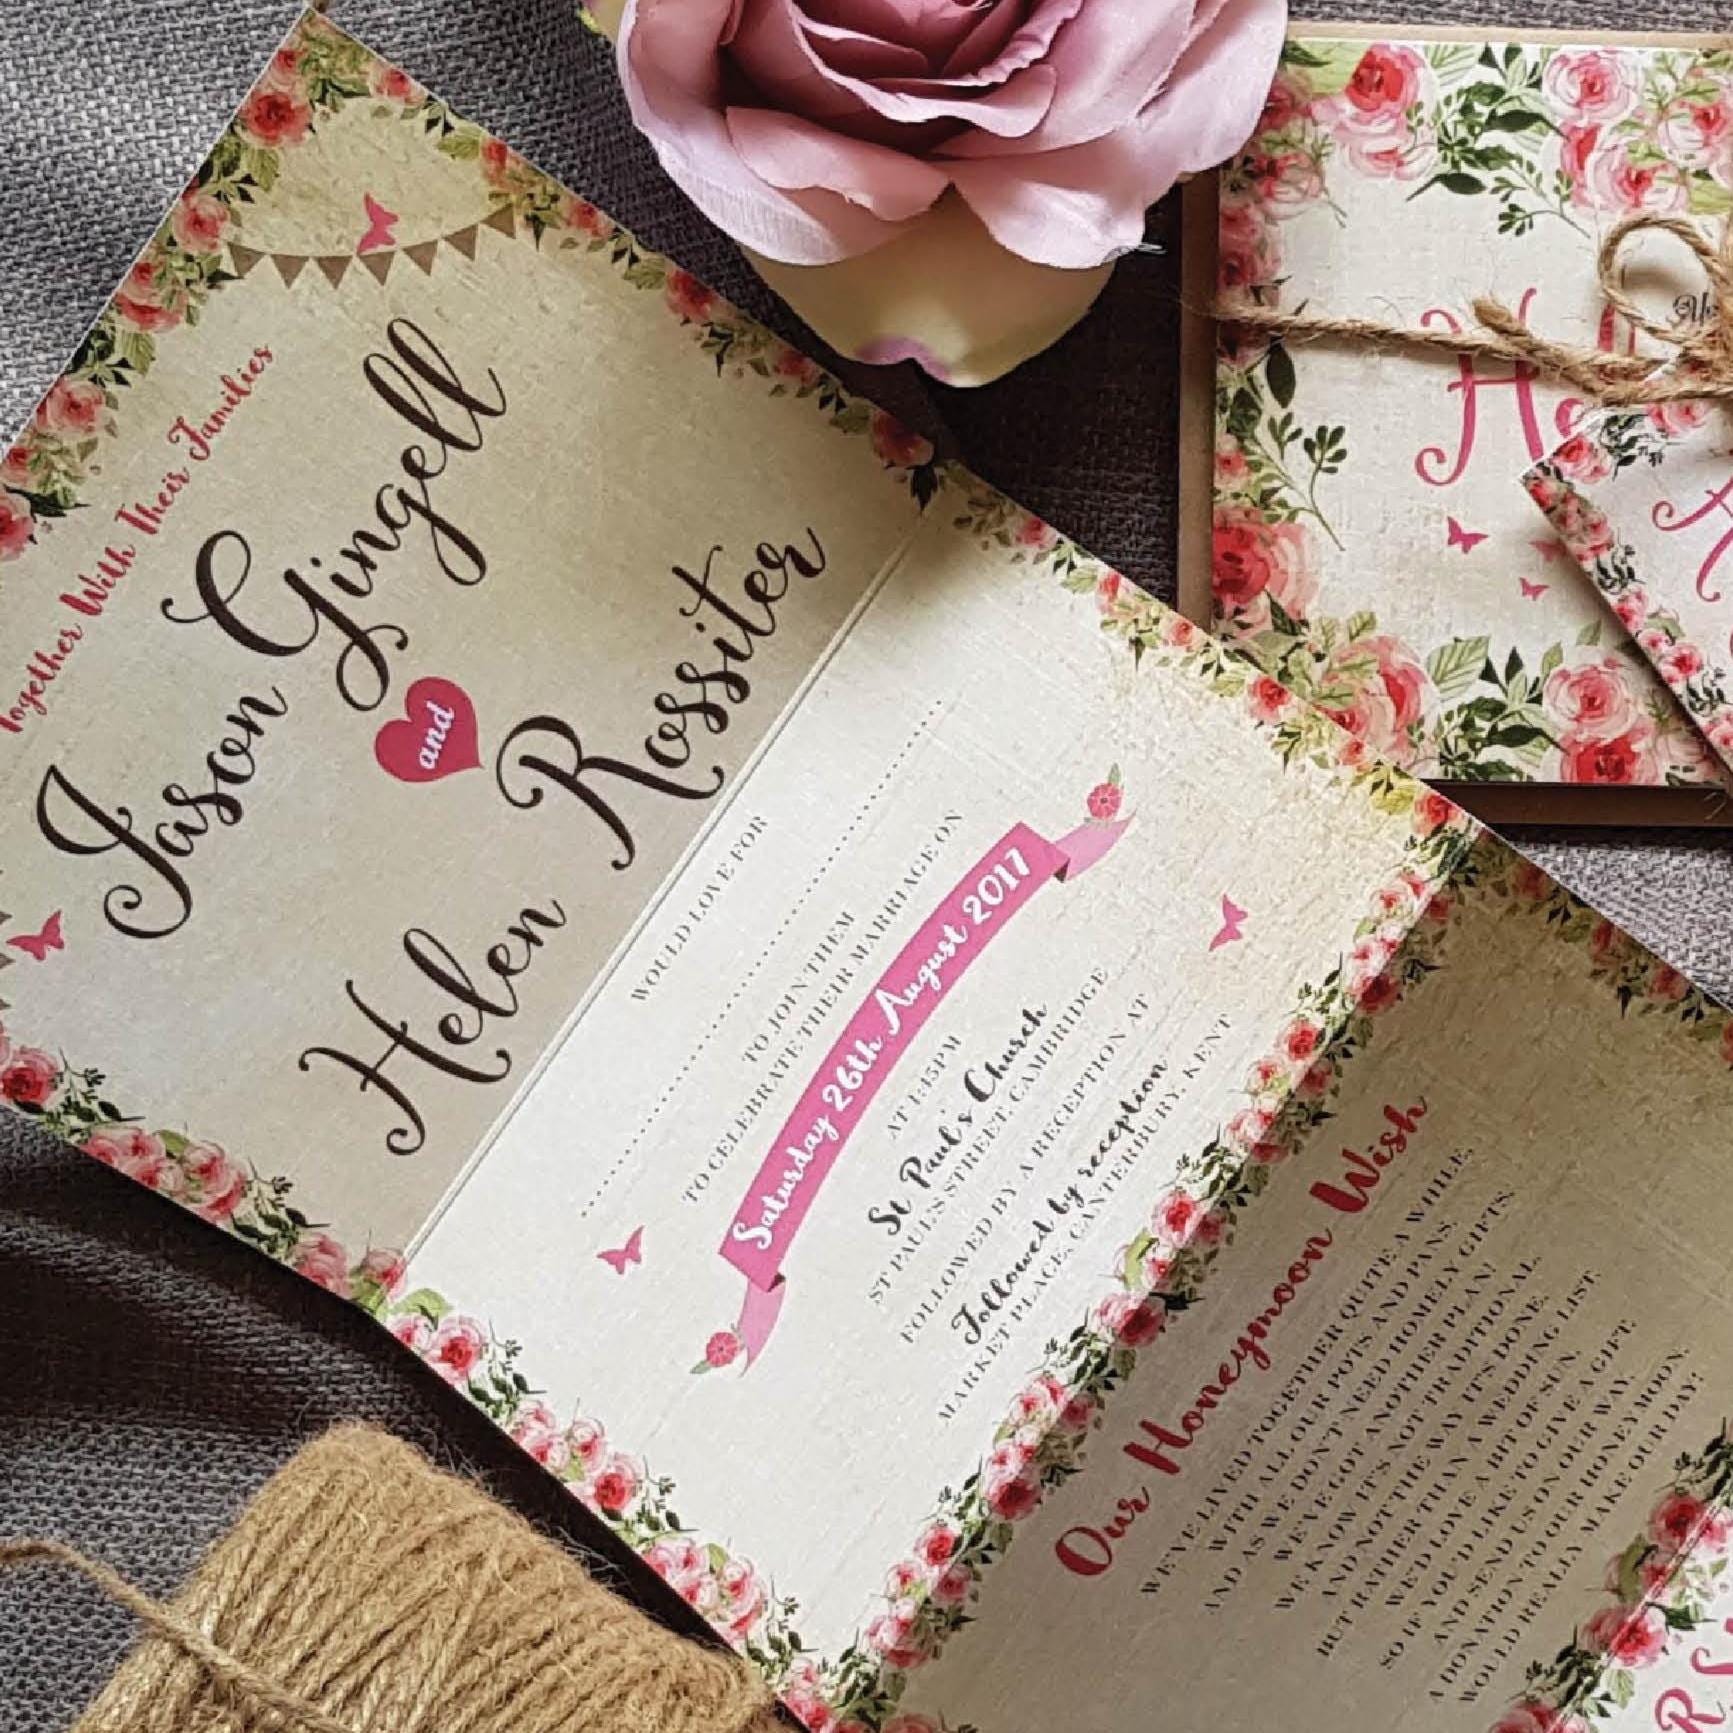 Together With Their Families
Jason Gingell
and
Helen Rossiter
WOULD LOVE FOR
TO JOIN THEM
TO CELEBRATE THEIR MARRIAGE ON
Saturday 26th August 2017
AT 1:45PM
St Paul's Church
ST PAUL'S STREET, CAMBRIDGE
FOLLOWED BY A RECEPTION AT
Followed by reception
MARKET PLACE, CANTERBURY, KENT
Our Honeymoon Wish
WE'VE LIVED TOGETHER QUITE A WHILE,
WITH ALL OUR POTS AND PANS.
AND AS WE DON'T NEED HOMELY GIFTS,
WE'VE GOT ANOTHER PLAN!
WE KNOW IT'S NOT TRADITIONAL,
AND NOT THE WAY IT'S DONE,
BUT RATHER THAN A WEDDING LIST,
WE'D LOVE A BIT OF SUN.
SO IF YOU'D LIKE TO GIVE A GIFT,
AND SEND US ON OUR WAY,
A DONATION TO OUR HONEYMOON,
WOULD REALLY MAKE OUR DAY!